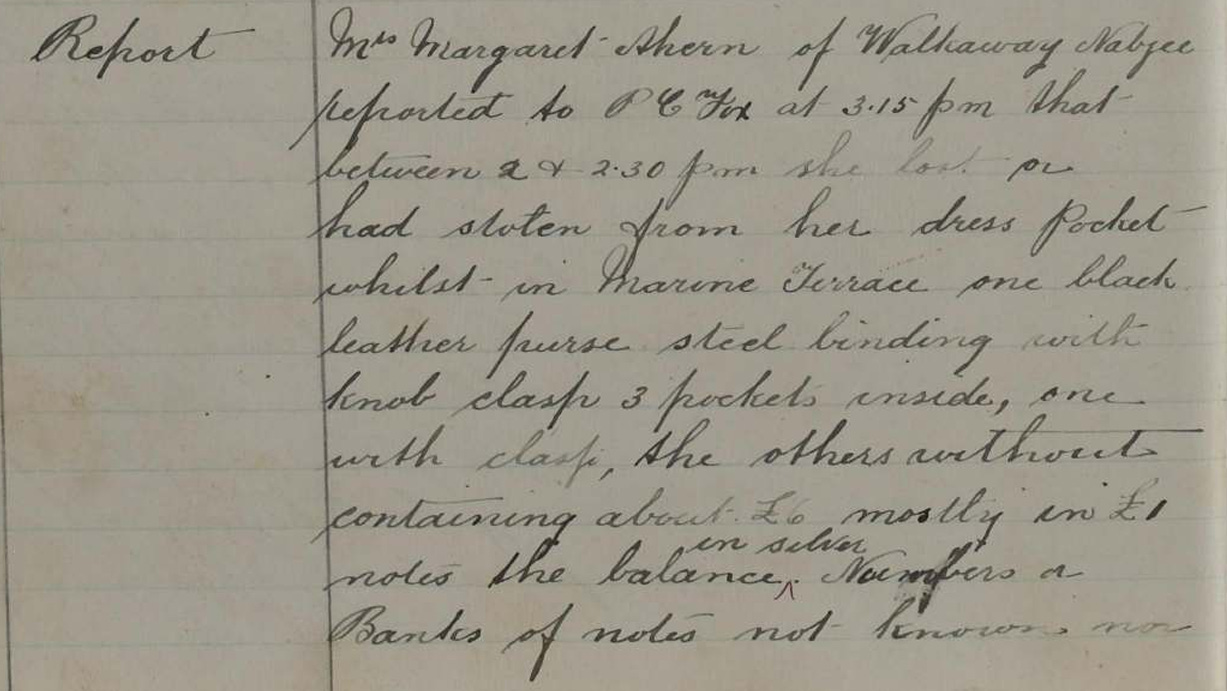 Report
Mrs Margaret Ahern of Walkaway
reported to P C Fox at 3.15 pm that
between 2 & 2.30 pm she lost or
had stolen from her dress Pocket
whilst in Marine Terrace one black
leather purse steel binding with
knob clasp 3 pockets inside, one
with clasp, the others without
containing about £6 mostly in £1
in silver
notes the balance ^. Numbers or
Banks of notes not known nor